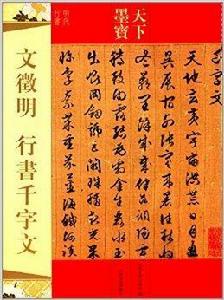 天下
墨寶
文徵明 行書千字文
天地玄黃宇宙洪荒日月盈
昃辰宿列張寒來暑往秋收
冬藏閏餘成歲律呂調陽雲
騰致雨露結為霜金生麗水玉
出崑岡劍號巨闕珠稱夜光果
珍李柰菜重芥薑海鹹河淡